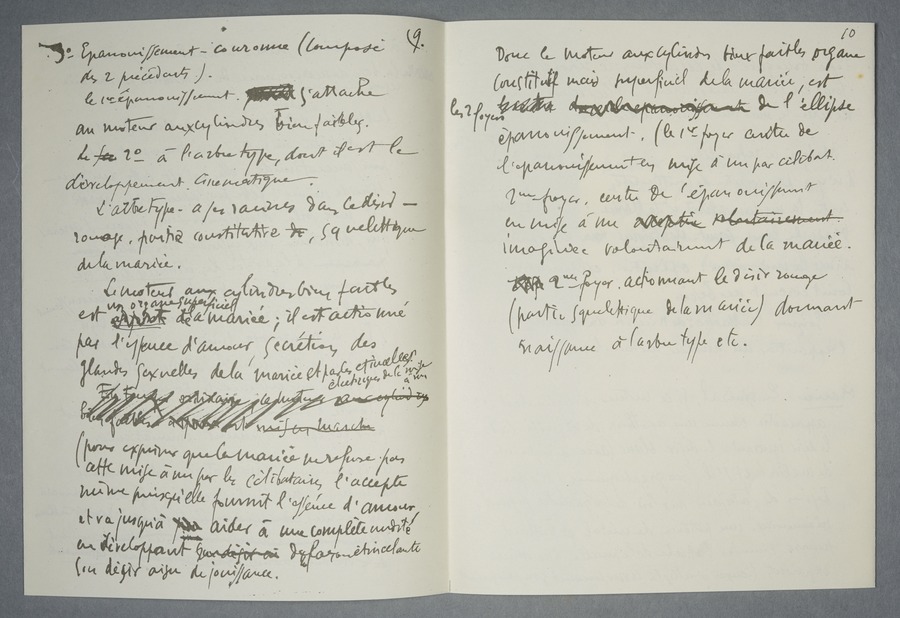 9.
3° Epanouissement - couronne (Composé
des 2 précédents).
le 1er épanouissement. s'attache
au moteur aux cylindres bien faibles.
Le 2° à l'arbre type, dont il est le
développement. Cinématique.
L'arbre type - a ses racines dans le désir -
rouage, partie constitutive de, squelettique
de la mariée.
Le moteur aux cylindres bien faibles
un organe superficiel
est de la mariée ; il est actionné
par l'essence d'amour, sécrétion des
glandes sexuelles de la mariée et par les étincelles
électriques de la mise
à nu
solitaire aux cylindres
bien faibles mis en marche
(pour exprimer que la mariée ne refuse pas
cette mise à nu par les célibataires, l'accepte
même puisqu'elle fournit l'essence d'amour
et va jusqu'à aider à une complète nudité
en développant son désir de façon étincelante
son désir aigu de jouissance.
10
Donc le moteur aux cylindres bien faibles organe
constitutif mais superficiel de la mariée, est
les 2 foyers de l'ellipse
épanouissement. (le 1er foyer centre de
l'épanouissement en mise à nu par célibat.
2me foyer, centre de l'épanouissement
en mise à nu volontairement
imaginée volontairement de la mariée.
2me foyer. actionnant le désir rouage
(partie squelettique de la mariée) donnant
naissance à l'arbre type etc.